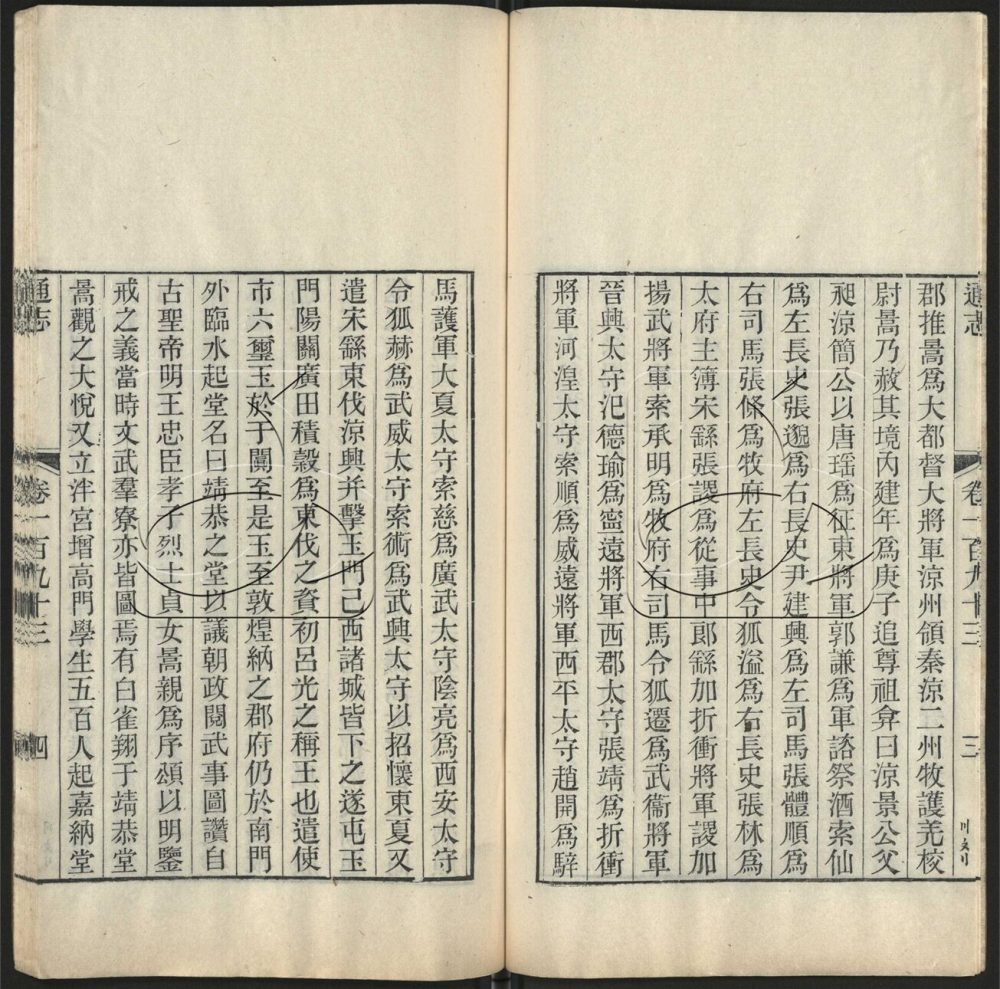 通志
卷一百九十三
三
郡推暠爲大都督大將軍涼州領秦涼二州牧護羌校
尉暠乃赦其境內建年爲庚子追尊祖弇曰涼景公父
昶涼簡公以唐瑶爲征東將軍郭謙爲軍諮祭酒索仙
爲左長史張邈爲右長史尹建興爲左司馬張體順爲
右司馬張條爲牧府左長史令狐溢爲右長史張林爲
太府主簿宋繇張謖爲從事中郎繇加折衝將軍謖加
揚武將軍索承明爲牧府右司馬令狐遷爲武衞將軍
晉興太守氾德瑜爲寧遠將軍西郡太守張靖爲折衝
將軍河湟太守索順爲威遠將軍西平太守趙開爲騂
馬護軍大夏太守索慈爲廣武太守陰亮爲西安太守
令狐赫爲武威太守索術爲武興太守以招懷東夏又
遣宋繇東伐涼興并擊玉門已西諸城皆下之遂屯玉
門陽關廣田積穀爲東伐之資初呂光之稱王也遣使
市六璽玉於于闐至是玉至敦煌納之郡府仍於南門
外臨水起堂名曰靖恭之堂以議朝政閱武事圖讚自
古聖帝明王忠臣孝子烈士貞女暠親爲序頌以明鑒
戒之義當時文武羣寮亦皆圖焉有白雀翔于靖恭堂
暠觀之大悅又立泮宮增高門學生五百人起嘉納堂
通志
卷一百九十三
四